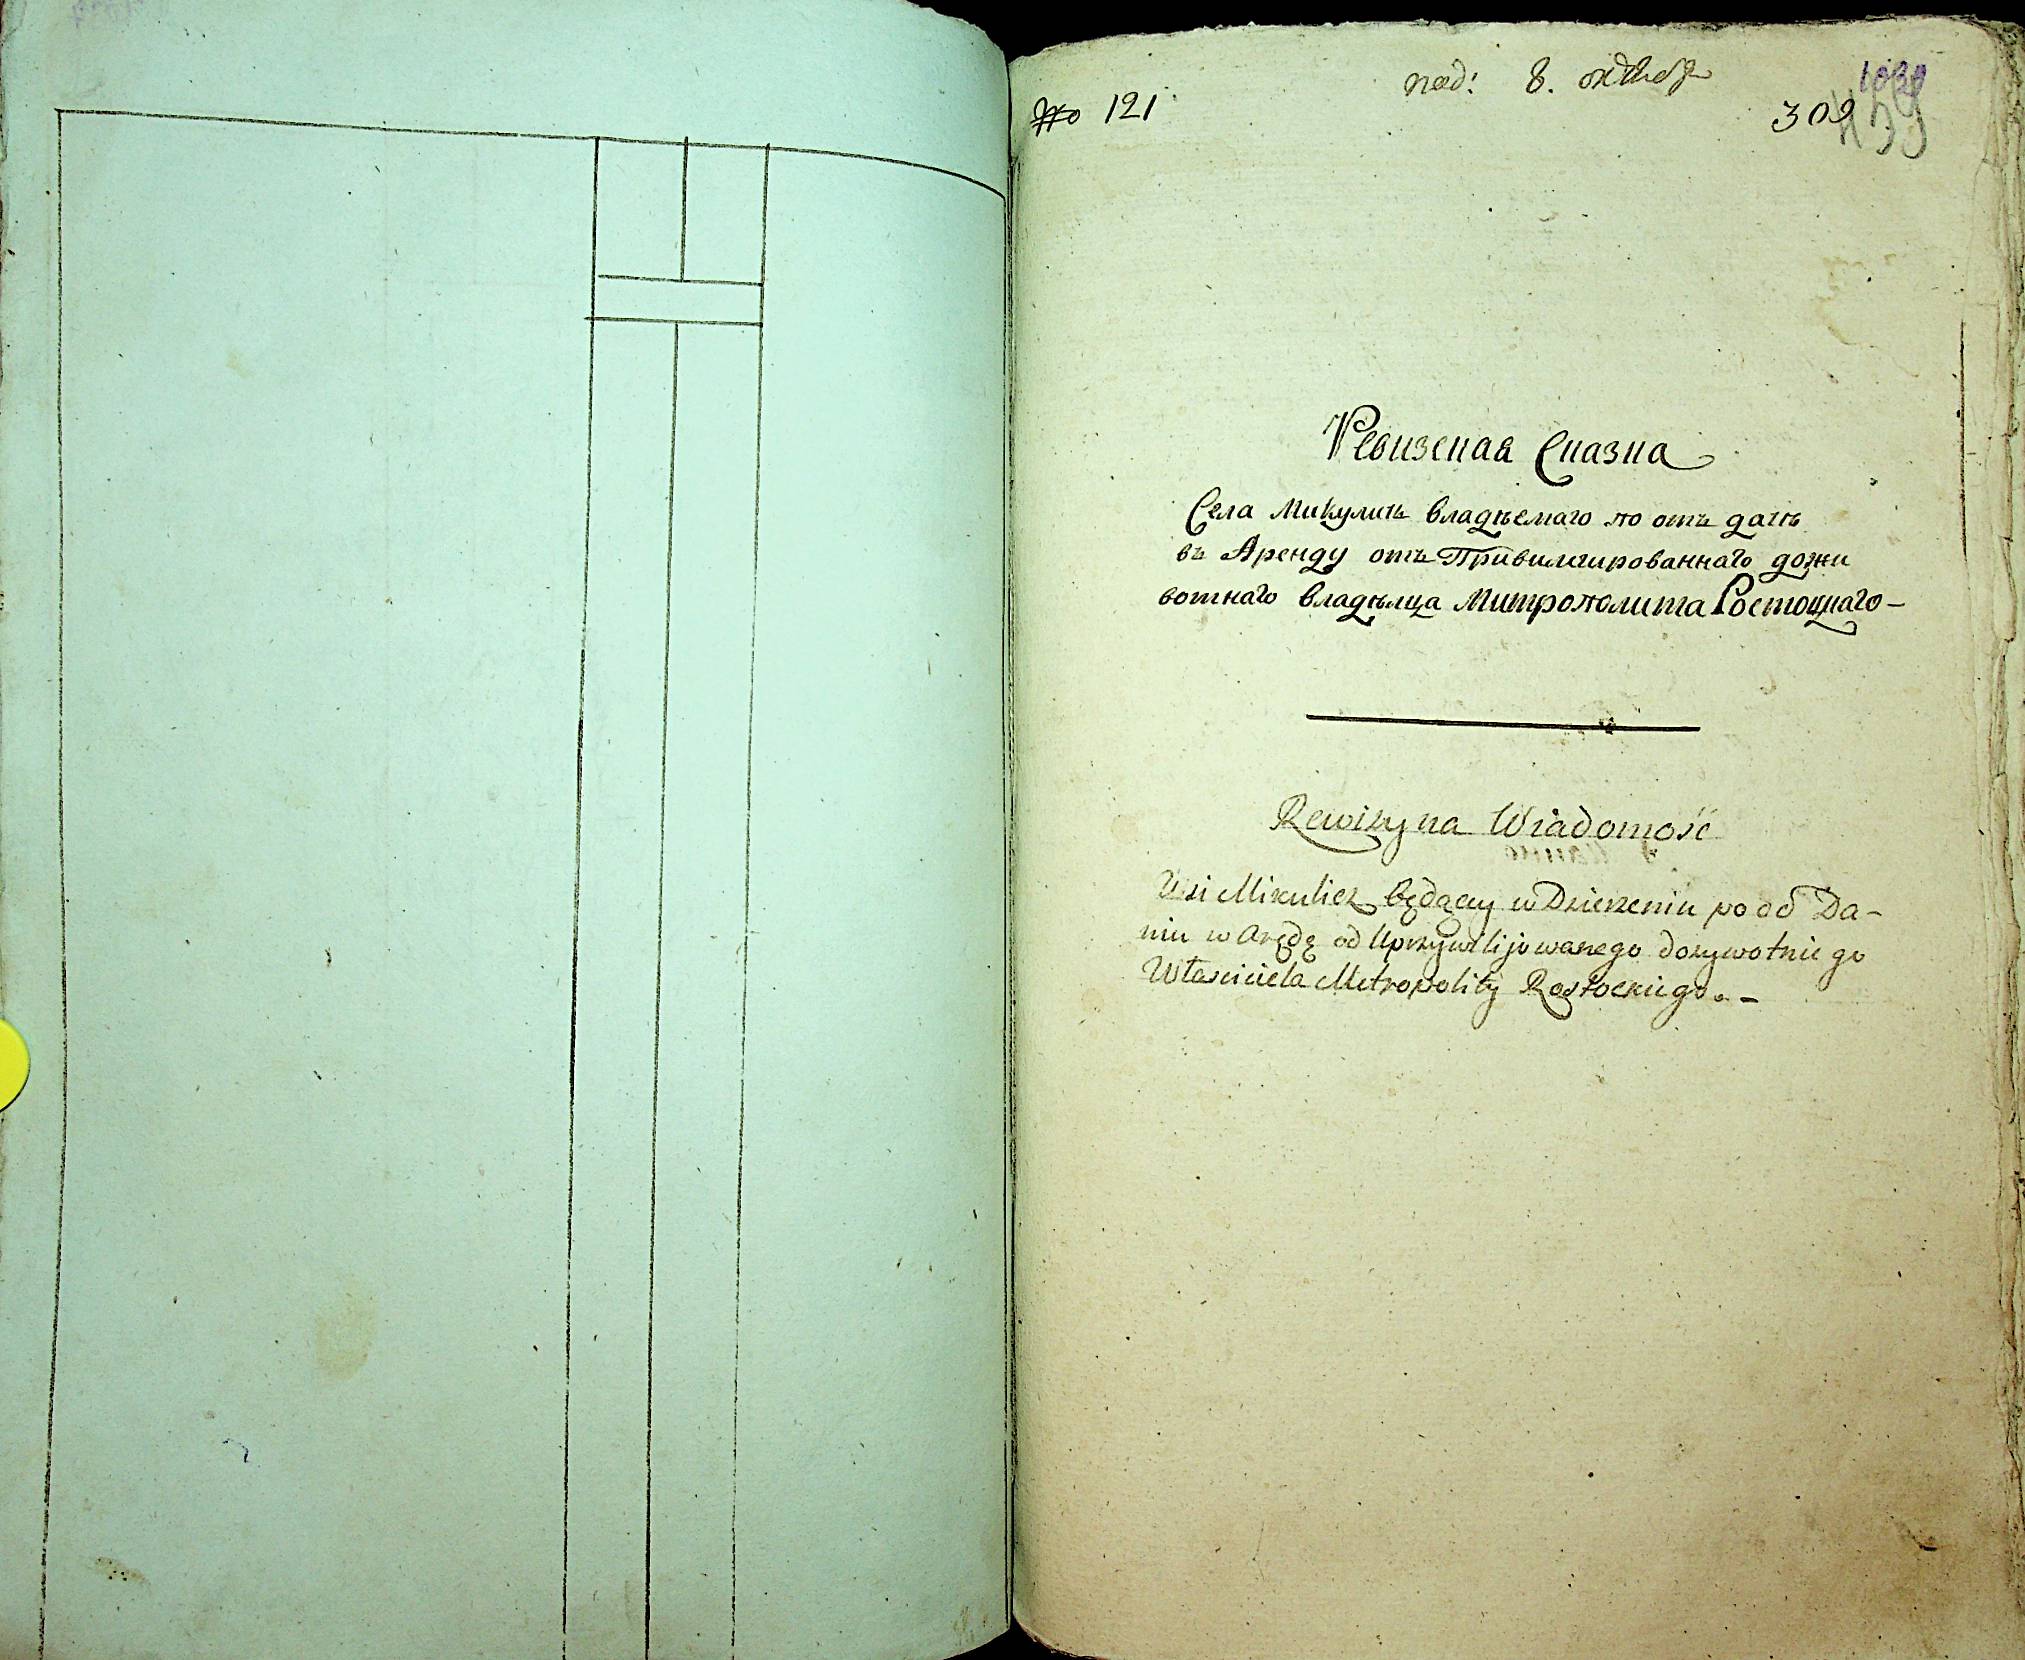 № 121
под: 8. октября
1039
309
Ревизская Сказка
Села Микулич владѣемаго по отъ дачѣ
въ Аренду отъ Привилигированнаго дожи
вотнаго владѣлца Митрополита Ростоцкаго —
Rewizyna Wiadomość
Wsi Mikulicz będący w Dzierzeniu po od Da-
niu w Arędę od Uprzywilijowanego dozywotniego
Własciciela Metropolity Rostockiego. —